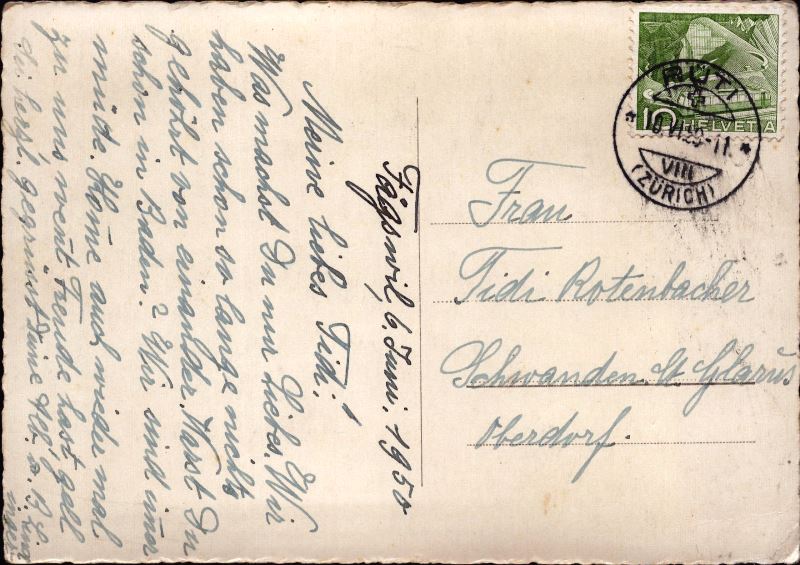 Fägswil, 6. Juni. 1950
Meine liebes Tidi!
Was machst Du nur Liebes. Wir
haben schon so lange nichts
gehört von einander. Warst Du
schon in Baden? Wir sind imer
müde. Kome auch wieder mal
zu uns went Freude hast gell
sei herzl. gegrüsst Deine
RÜTI
10 VI 50-11
VIII
(ZÜRICH)
10 HELVETIA
Frau
Tidi Rotenbacher
Schwanden Ct Glarus
Oberdorf.